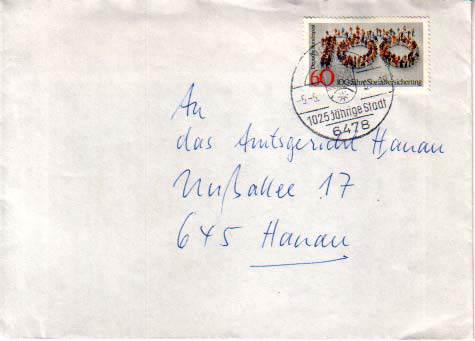 Deutsche Bundespost
60
100 Jahre Sozialversicherung
-5.-5.
1025 Jährige Stadt
6478
An
das Amtsgericht Hanau
Nußallee 17
645 Hanau